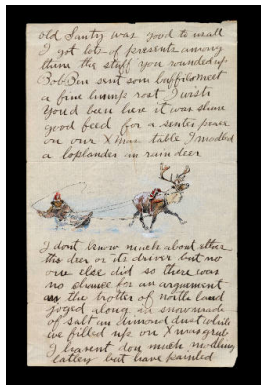 old Santy was good to us all
I got lots of presents among
them the stuff you rounded up.
Bob Ben sent som buffalo meet
a fine hump rost I wish
You'd been here it was shure
good feed for a center peace
on our Xmas table I modled
a loplander in rain deer
I dont know much about ether
the deer or its driver but no
one else did so there was
no chance for an arguement
as the trotter of north land
joged along in snow made
of salt an dimond dust while
we filled up on Xmas grub
I havent don much modling
latley but have painted